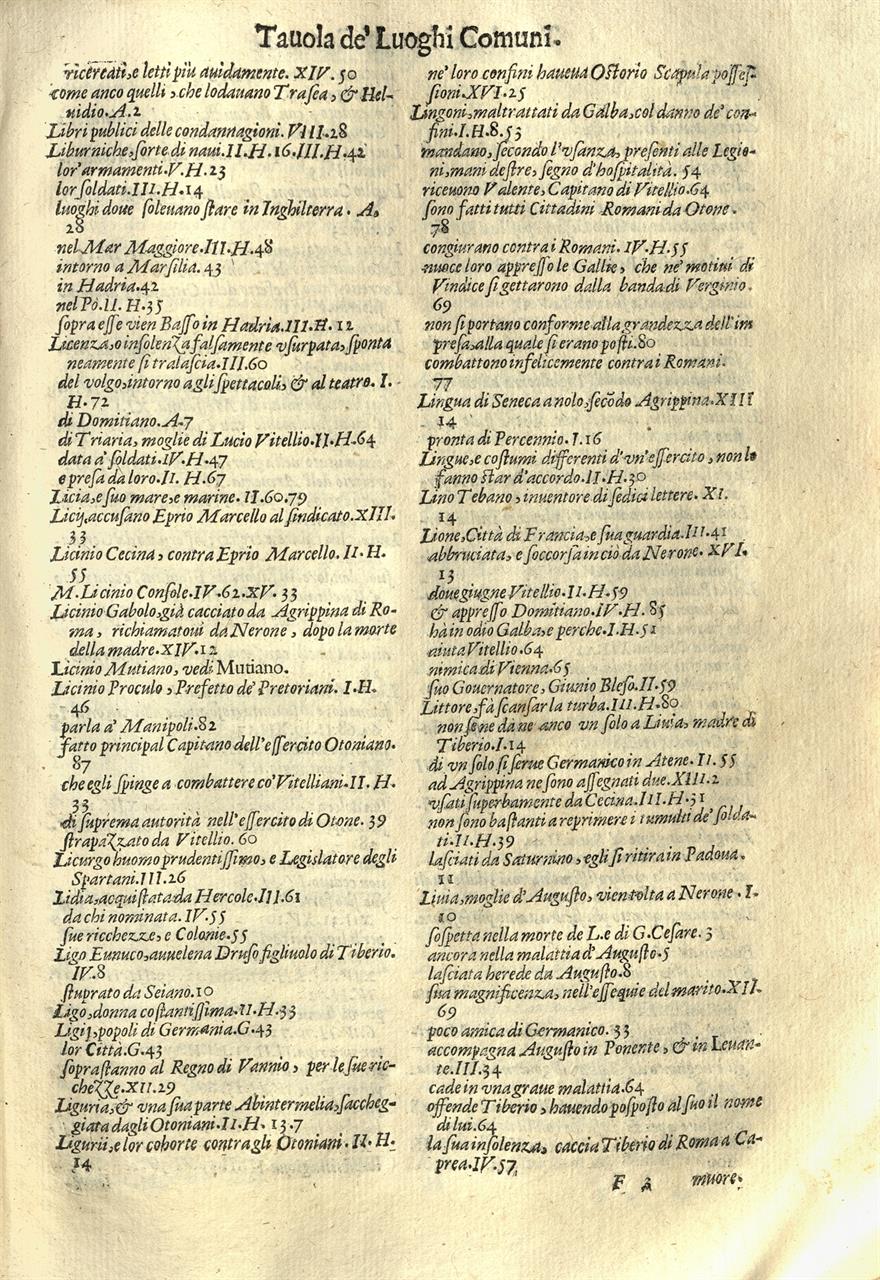 Tauola de' Luoghi Comuni.
ricercati, e letti più auidamente. XIV. 50
come anco quelli, che lodauano Trasea, & Hel-
uidio. A. 2
Libri publici delle condannagioni. VIII. 28
Liburniche, sorte di naui. II. H. 16. III. H. 42
lor' armamenti. V. H. 23
lor soldati. III. H. 14
luoghi doue soleuano stare in Inghilterra. A.
28
nel Mar Maggiore. III. H. 48
intorno a Marsilia. 43
in Hadria. 42
nel Pò. II. H. 35
sopra esse vien Basso in Hadria. III. H. 12
Licenza, o insolenza falsamente vsurpata, sponta
neamente si tralascia. III. 60
del volgo, intorno agli spettacoli, & al teatro. I.
H. 72
di Domitiano. A. 7
di Triaria, moglie di Lucio Vitellio. II. H. 64
data a' soldati. IV. H. 47
e presa da loro. II. H. 67
Licia, e suo mare, e marine. II. 60. 79
Licij, accusano Eprio Marcello al sindicato. XIII.
33
Licinio Cecina, contra Eprio Marcello. II. H.
55
M. Licinio Console. IV. 62. XV. 33
Licinio Gabolo, già cacciato da Agrippina di Ro-
ma, richiamatoui da Nerone, dopo la morte
della madre. XIV. 12
Licinio Mutiano, vedi Mutiano.
Licinio Proculo, Prefetto de' Pretoriani. I. H.
46
parla a' Manipoli. 82
fatto principal Capitano dell'essercito Otoniano.
87
che egli spinge a combattere co' Vitelliani. II. H.
33
di suprema autorità nell'essercito di Otone. 39
strapazzato da Vitellio. 60
Licurgo huomo prudentissimo, e Legislatore degli
Spartani. III. 26
Lidia, acquistata da Hercole. III. 61
da chi nominata. IV. 55
sue ricchezze, e Colonie. 55
Ligo Eunuco, auuelena Druso figliuolo di Tiberio.
IV. 8
stuprato da Seiano. 10
Ligo, donna costantissima. II. H. 33
Ligij, popoli di Germania. G. 43
lor Città. G. 43
soprastanno al Regno di Vannio, per le sue ric-
chezze. XII. 29
Liguria, & vna sua parte Abintermelia, saccheg-
giata dagli Otoniani. II. H. 13. 7
Ligurii, e lor cohorte contra gli Otoniani. II. H.
14
ne' loro confini haueua Ostorio Scapula posses-
sioni. XVI. 25
Lingoni, maltrattati da Galba, col danno de' con-
fini. I. H. 8. 53
mandano, secondo l'vsanza, presenti alle Legio-
ni, mani destre, segno d'hospitalità. 54
riceuono Valente, Capitano di Vitellio. 64
sono fatti tutti Cittadini Romani da Otone.
78
congiurano contra i Romani. IV. H. 55
nuoce loro appresso le Gallie, che ne' motiui di
Vindice si gettarono dalla banda di Verginio.
69
non si portano conforme alla grandezza dell'im
presa, alla quale si erano posti. 80
combattono infelicemente contra i Romani.
77
Lingua di Seneca a nolo, secõdo Agrippina. XIII
14
pronta di Percennio. I. 16
Lingue, e costumi differenti d'vn'essercito, non lo
fanno star d'accordo. II. H. 30
Lino Tebano, inuentore di sedici lettere. XI.
14
Lione, Città di Francia, e sua guardia. III. 41
abbruciata, e soccorsa in ciò da Nerone. XVI.
13
doue giugne Vitellio. II. H. 59
& appresso Domitiano. IV. H. 85
hà in odio Galba, e perche. I. H. 51
aiuta Vitellio. 64
nimica di Vienna. 65
suo Gouernatore, Giunio Bleso. II. 59
Littore, fà scansar la turba. III. H. 80
non sene dà ne anco vn solo a Liuia, madre di
Tiberio. I. 14
di vn solo si serue Germanico in Atene. II. 55
ad Agrippina ne sono assegnati due. XIII. 2
vsati superbamente da Cecina. III. H. 31
non sono bastanti a reprimere i tumulti de' solda-
ti. II. H. 39
lasciati da Saturnino, egli si ritira in Padoua.
11
Liuia, moglie d'Augusto, vien tolta a Nerone. I.
10
sospetta nella morte de L. e di G. Cesare. 3
ancora nella malattia d'Augusto. 5
lasciata herede da Augusto. 8
sua magnificenza, nell'essequie del marito. XII.
69
poco amica di Germanico. 33
accompagna Augusto in Ponente, & in Leuan-
te. III. 34
cade in vna graue malattia. 64
offende Tiberio, hauendo posposto al suo il nome
di lui. 64
la sua insolenza, caccia Tiberio di Roma a Ca-
prea. IV. 57
F 3 muore.